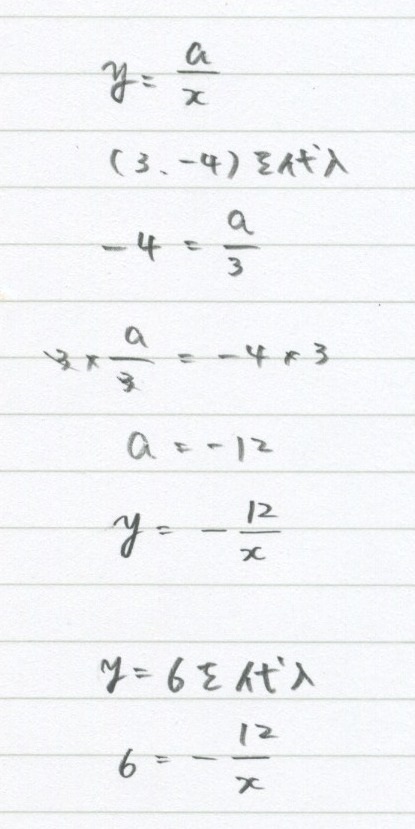 y = a/x
(3、-4) を代入
-4 = a/3
3 × a/3 = -4 × 3
a = -12
y = - 12/x
y = 6 を代入
6 = - 12/x